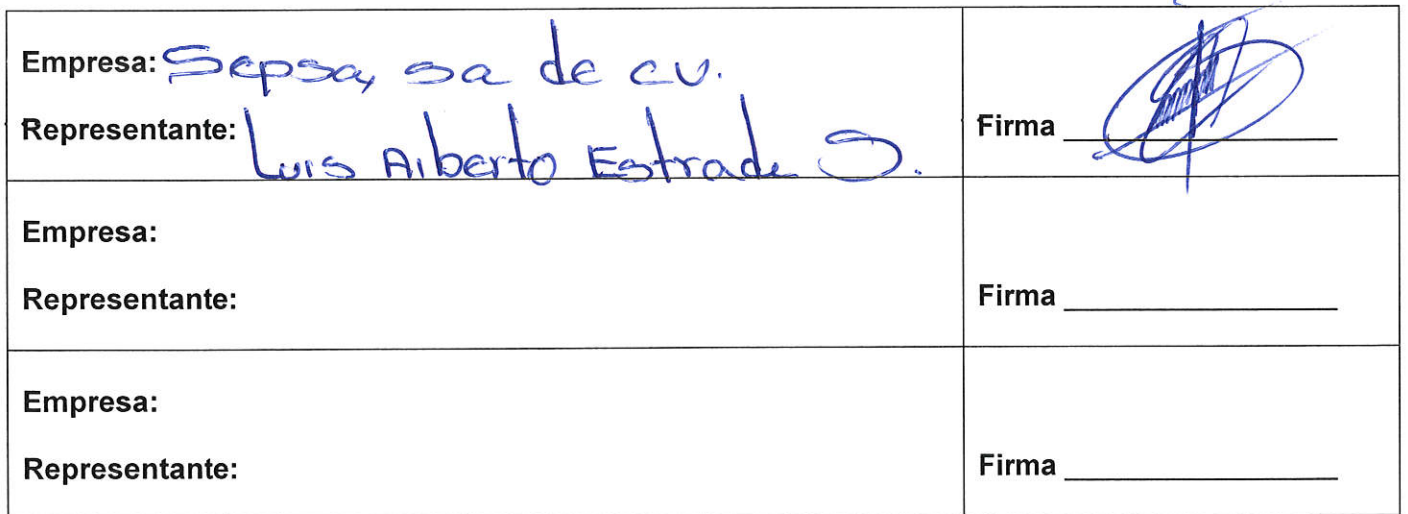 Empresa: Sepsa, sa de cv.
Representante: Luis Alberto Estrada S.
Firma
Empresa:
Representante:
Firma
Empresa:
Representante:
Firma